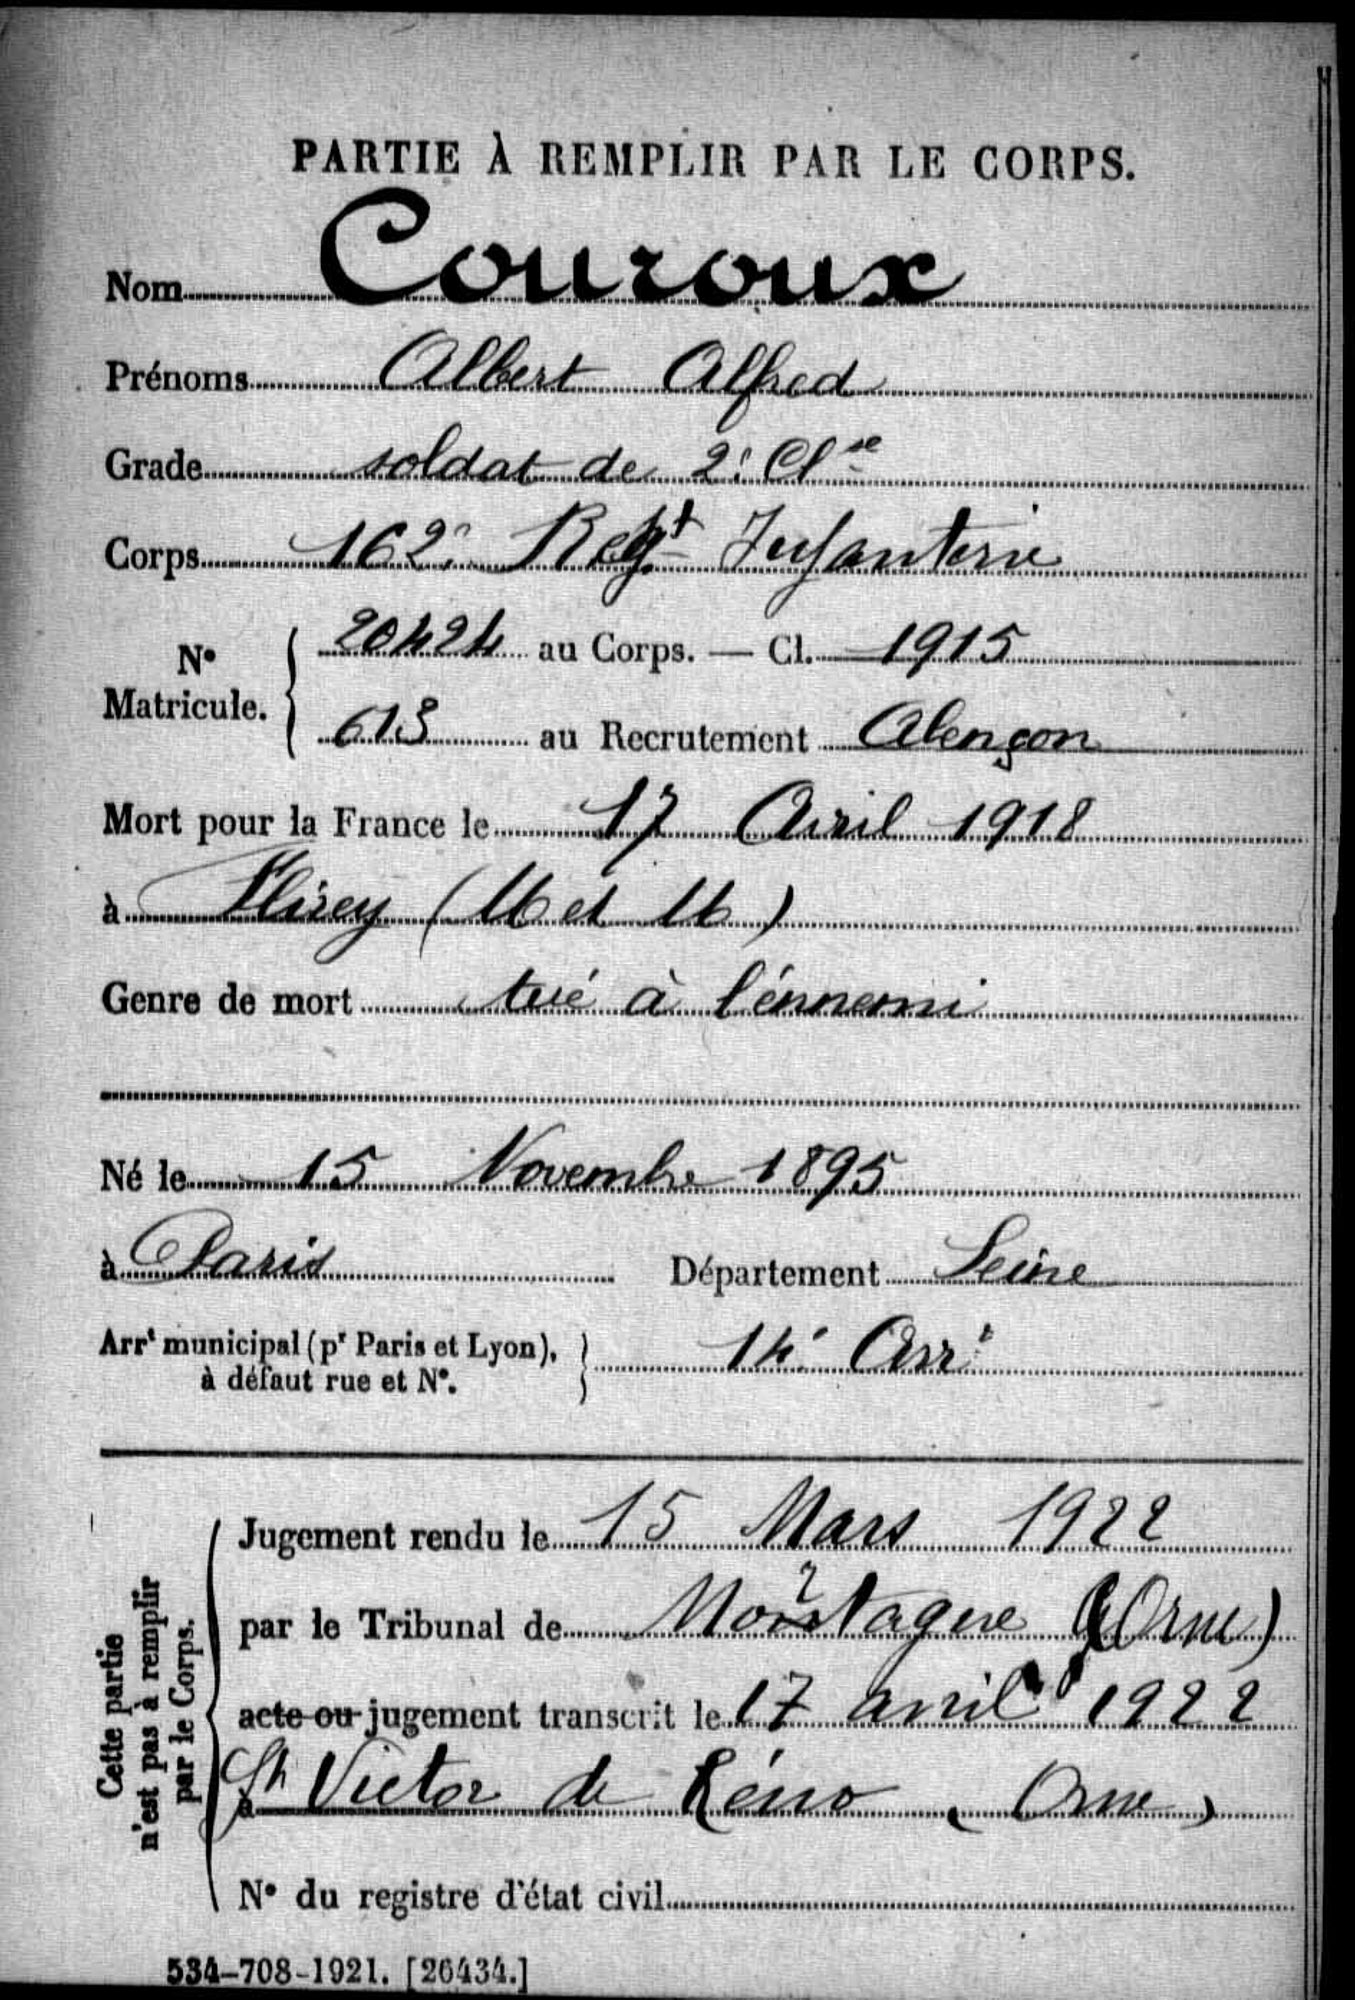 PARTIE À REMPLIR PAR LE CORPS.
Nom Couroux
Prénoms Albert Alfred
Grade soldat de 2e Clse
Corps 162e Regt Infanterie
No Matricule. { 20424 au Corps. — Cl. 1915
613 au Recrutement Alençon
Mort pour la France le 17 Avril 1918
à Flirey (M et M)
Genre de mort tué à l'énnemi
Né le 15 Novembre 1895
à Paris Département Seine
Arrt municipal (pr Paris et Lyon), } 14e Arrt
à défaut rue et No.
Cette partie
n'est pas à remplir
par le Corps.
Jugement rendu le 15 Mars 1922
par le Tribunal de Mortagne (Orne)
acte ou jugement transcrit le 17 avril 1922
à St Victor de Réno (Orne)
No du registre d'état civil
534-708-1921. [26434.]